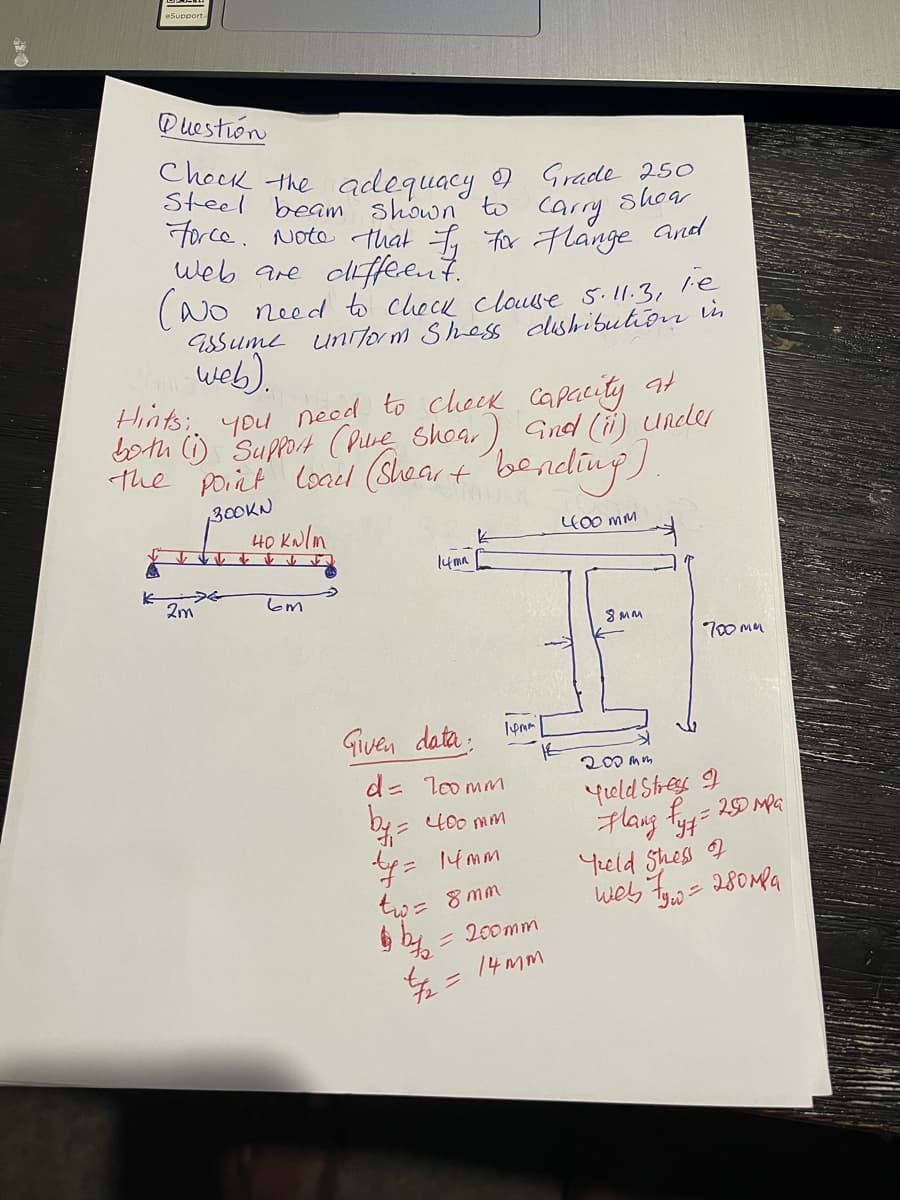 eSupport
Question
Check the adequacy of Grade 250
Steel beam shown to carry shear
Force. Note that fy for Flange and
web are different.
(No need to check clause 5.11.3, i.e
assume uniform Stress distribution in
web).
Hints: you need to check capacity at
both (i) Support (Pure Shear) and (ii) under
the point load (Shear + bending)
300KN
40 KN/m
2m
6m
400 mm
14mm
8 mm
700 mm
14mm
200 mm
Given data:
d = 700 mm
bf1 = 400 mm
tf = 14 mm
tw = 8 mm
bf2 = 200mm
tf2 = 14 mm
Yield Stress of
Flang fyf = 250 MPa
Yield Stress of
web fyw = 280 MPa